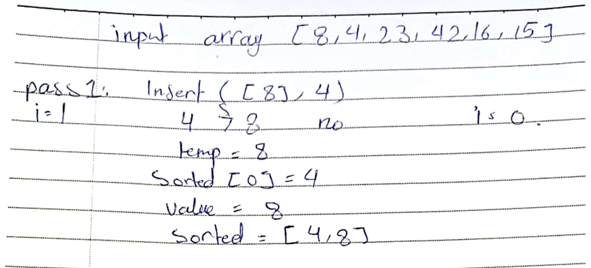 input array [8,4,23,42,16,15]
pass 1: Insert ([8], 4)
i=1 4 > 8 no is 0.
temp = 8
Sorted [0] = 4
value = 8
Sorted = [4,8]